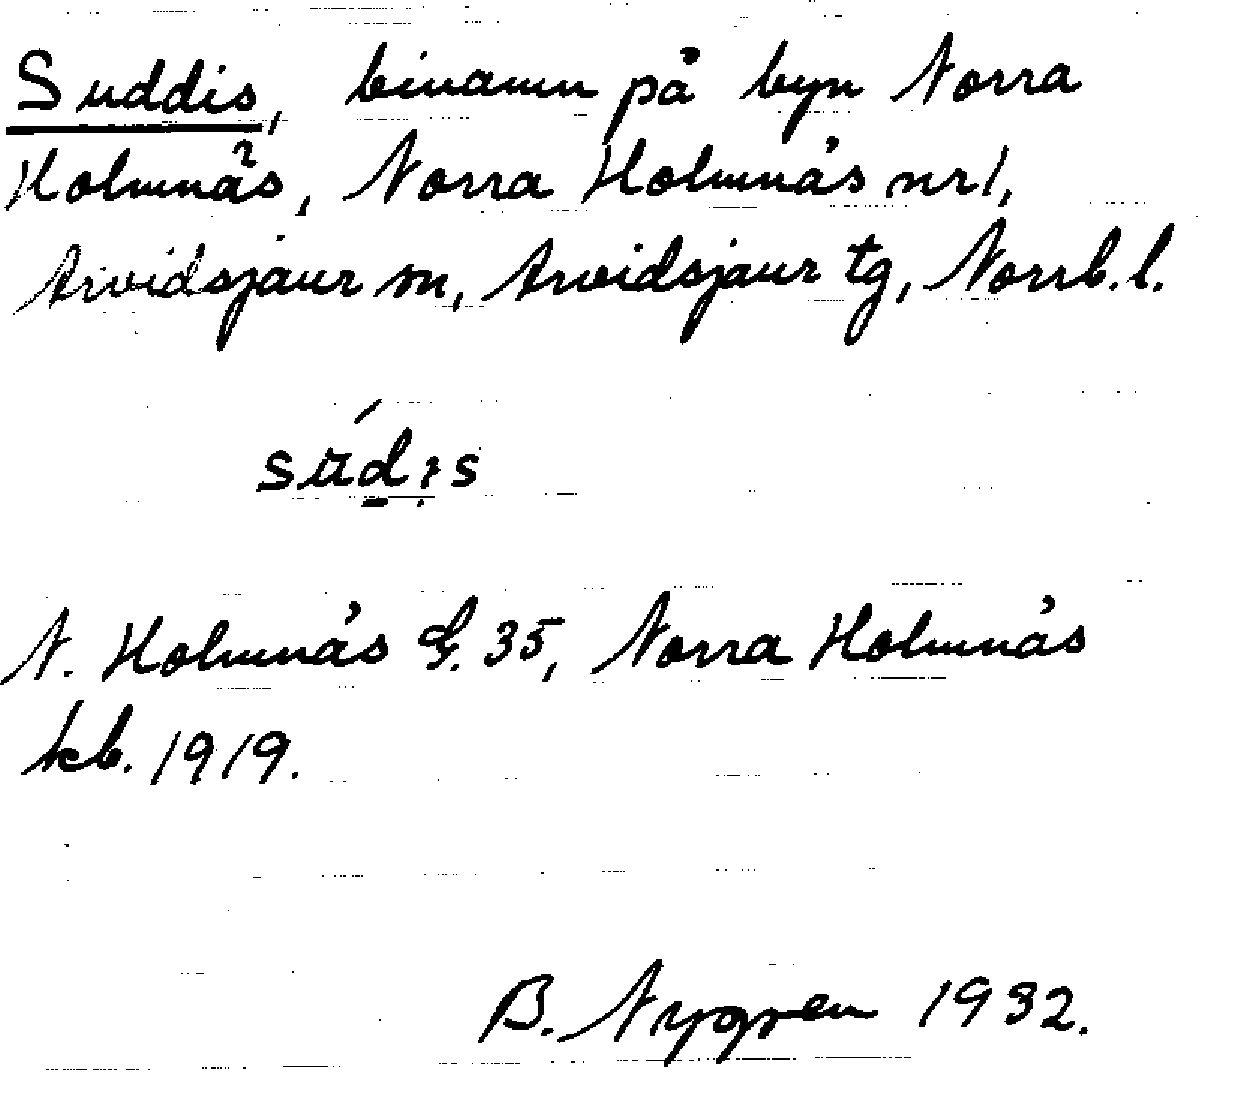 Suddis, binamn på byn Norra
Holmnäs, Norra Holmnäs nr 1,
Arvidsjaur sn, Arvidsjaur tg, Norrb. l.
N. Holmnäs 35, Norra Holmnäs
kb. 1919.
B. Nygren 1932.